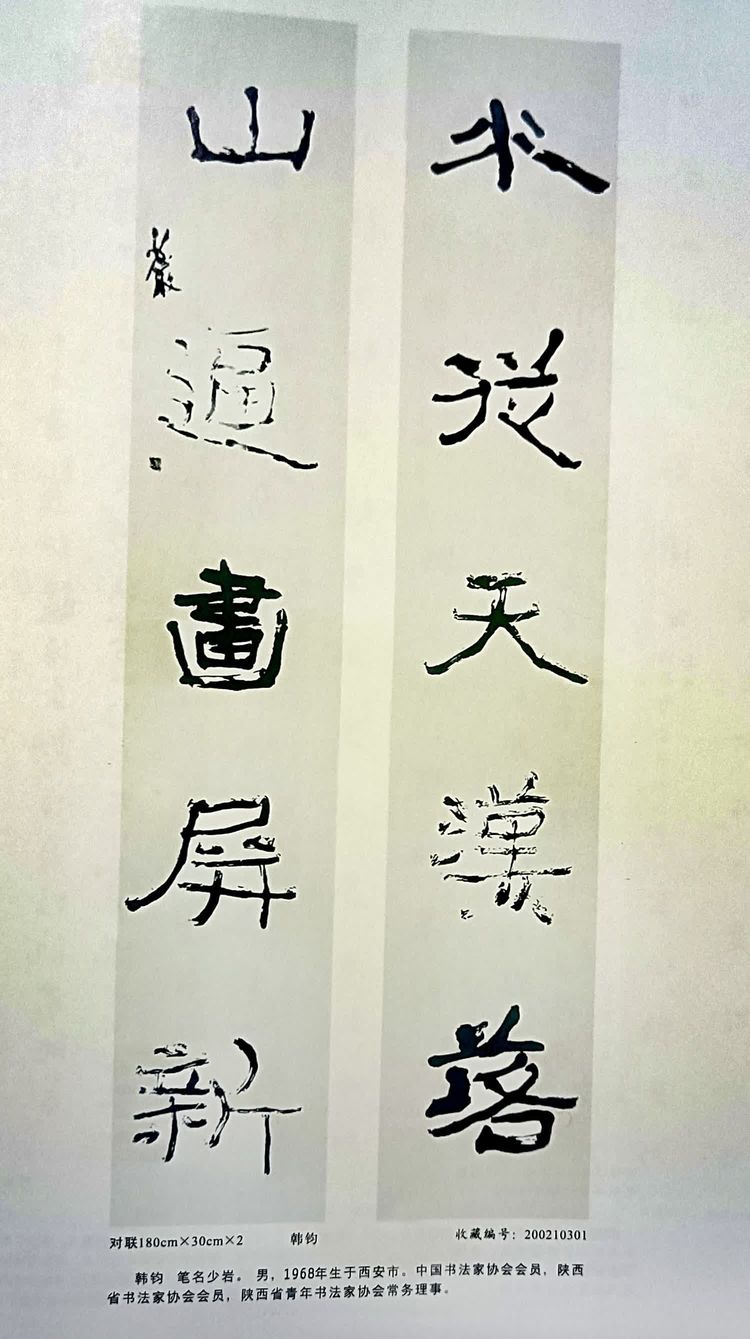 水從天漢落
山逼畫屏新
少巖
对联180cm×30cm×2 韩钧 收藏编号：200210301
韩钧 笔名少岩。男，1968年生于西安市。中国书法家协会会员，陕西
省书法家协会会员，陕西省青年书法家协会常务理事。